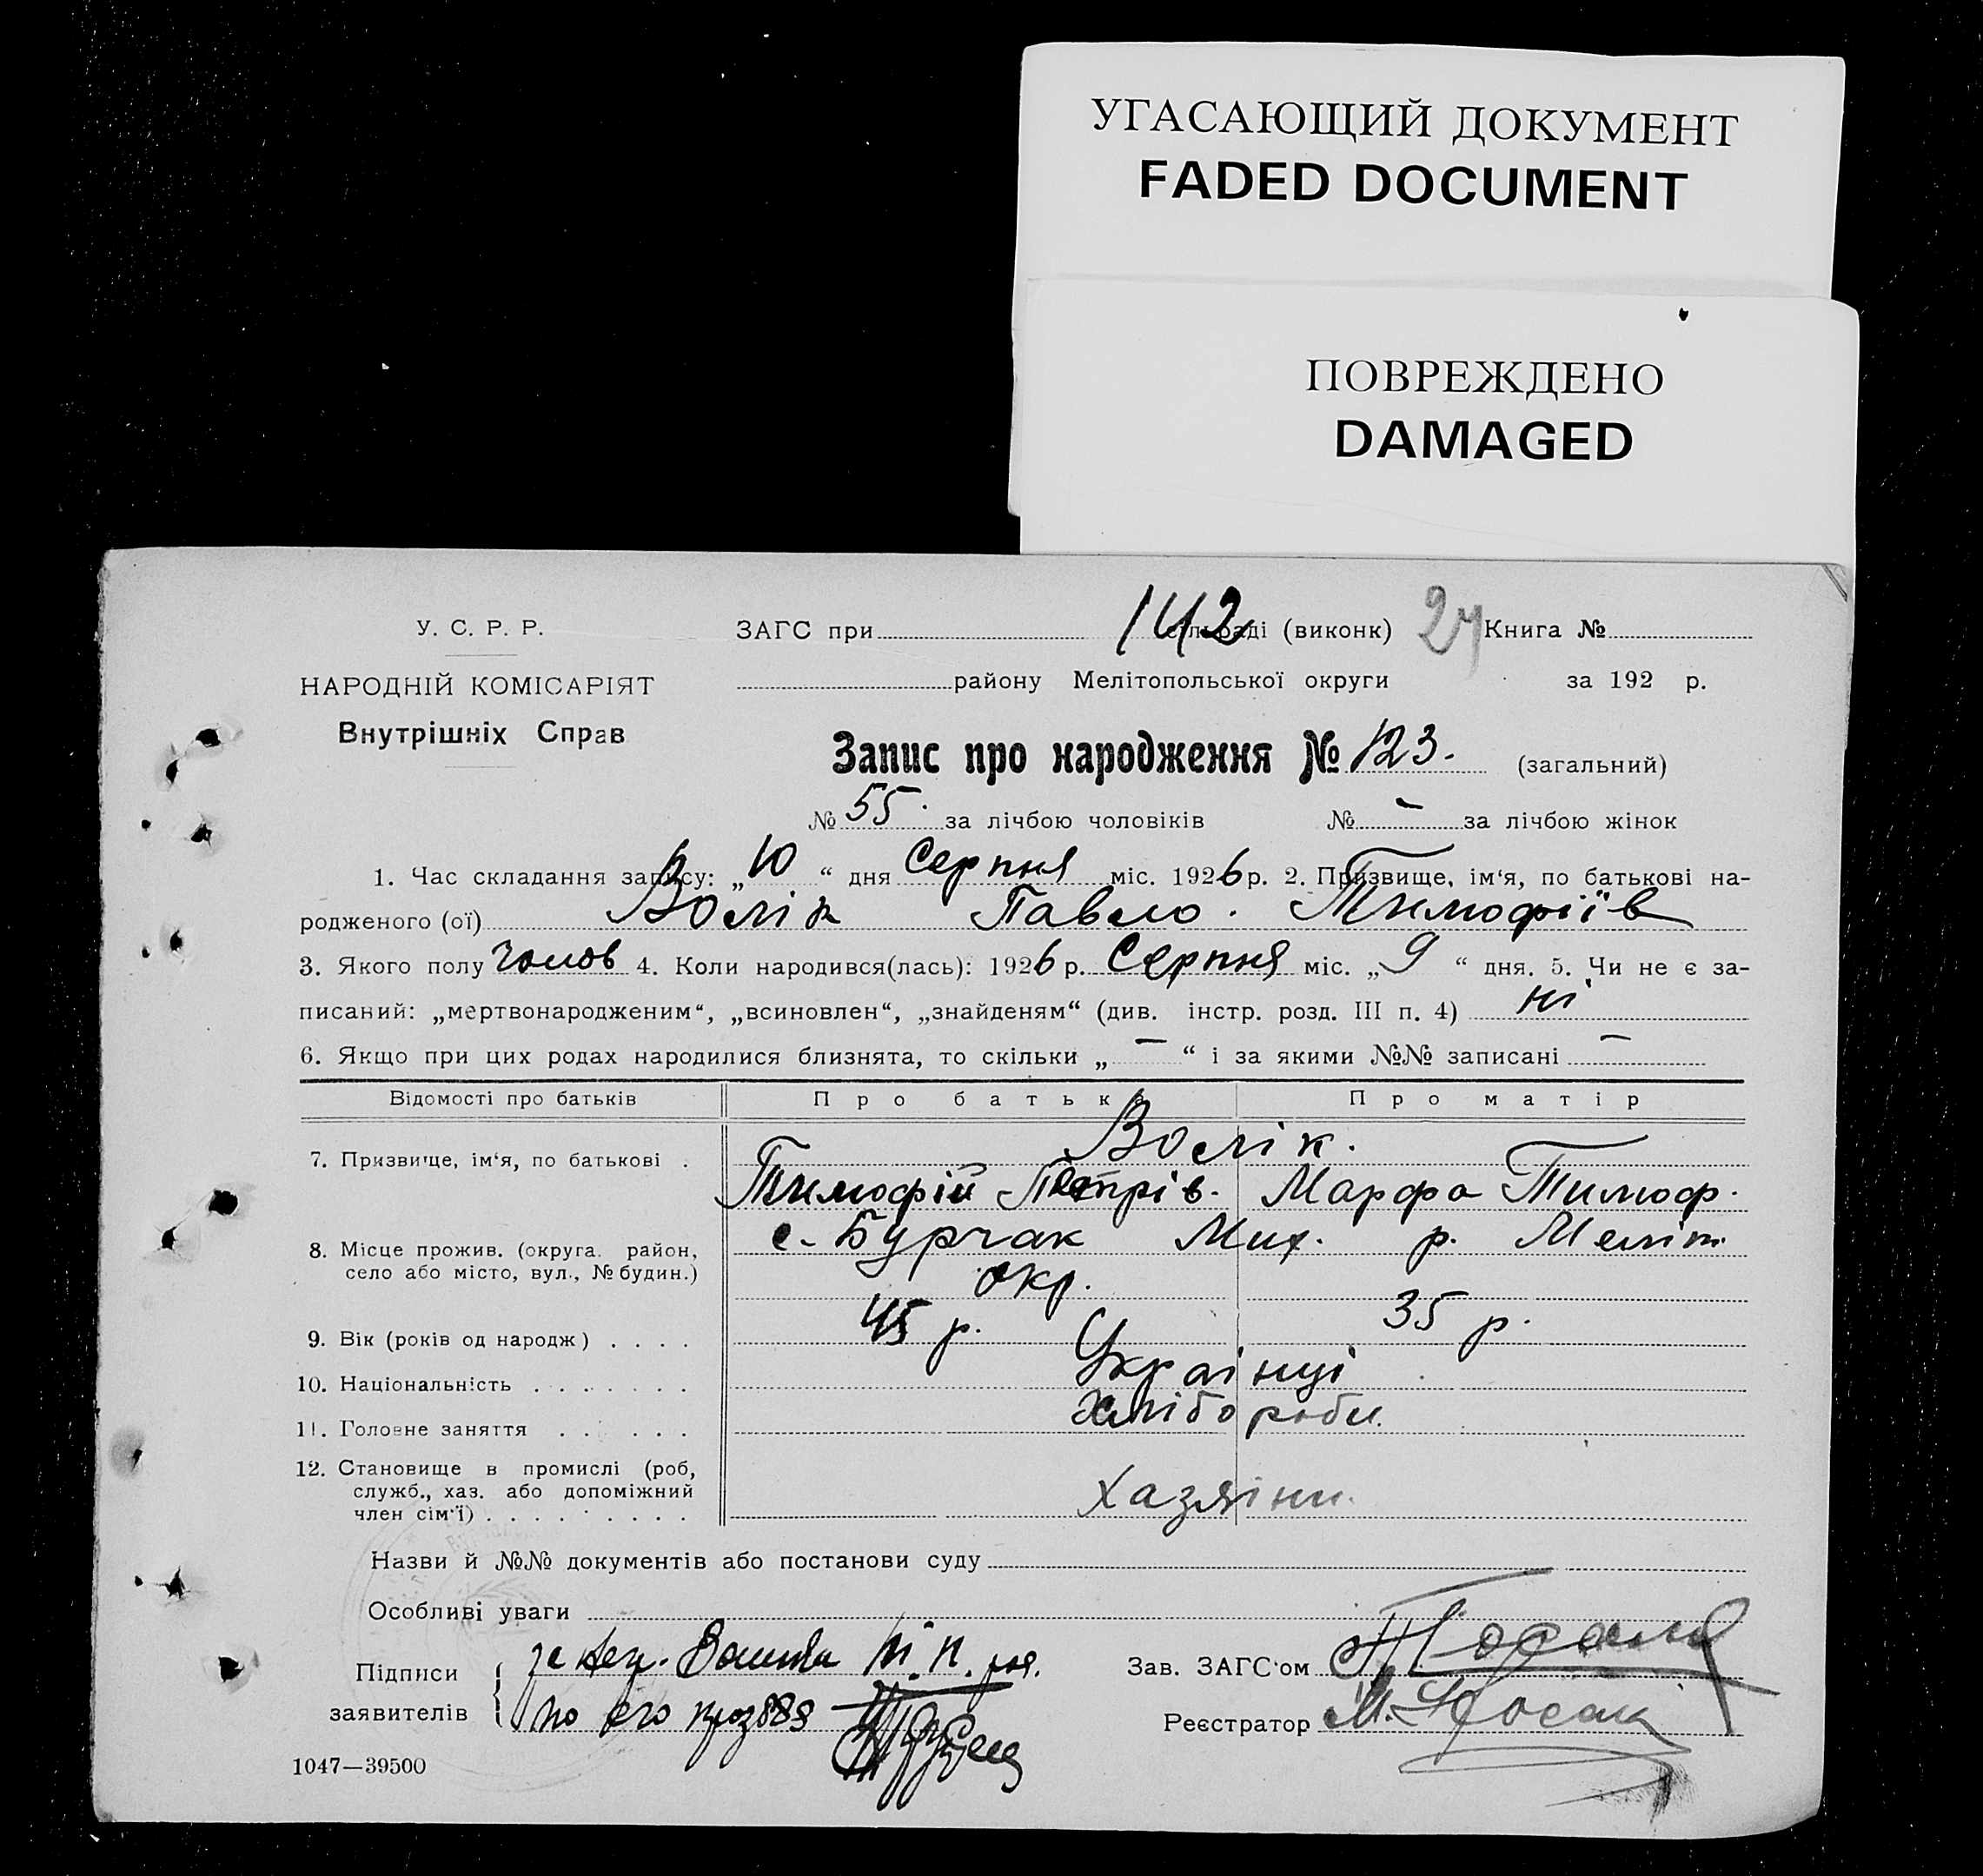 УГАСАЮЩИЙ ДОКУМЕНТ
FADED DOCUMENT
ПОВРЕЖДЕНО
DAMAGED
У. С. Р. Р.
НАРОДНІЙ КОМІСАРІЯТ
Внутрішніх Справ
ЗАГС при 142 сільраді (виконк) 24 Книга №
району Мелітопольської округи за 192 р.
Запис про народження № 123. (загальний)
№ 55. за лічбою чоловіків № - за лічбою жінок
1. Час складання запису: „10“ дня Серпня міс. 1926 р. 2. Призвище, ім'я, по батькові на-
родженого (ої) Волік Павло. Тимофіїв
3. Якого полу чолов 4. Коли народився(лась): 1926 р. Серпня міс. „9“ дня. 5. Чи не є за-
писаний: „мертвонародженим“, „всиновлен“, „знайденям“ (див. інстр. розд. III п. 4) ні
6. Якщо при цих родах народилися близнята, то скільки „-“ і за якими №№ записані -
Відомості про батьків Про батька Про матір
Волік.
7. Призвище, ім'я, по батькові .
Тимофій Петрів. Марфа Тимоф.
с. Бурчак Мих. р. Меліт.
8. Місце прожив. (округа. район,
село або місто, вул., № будин.)
окр.
9. Вік (років од народж) . . . . 45 р. 35 р.
10. Національність . . . . . . . Українці
11. Головне заняття . . . . . . Хлібороби.
12. Становище в промислі (роб,
служб., хаз. або допоміжний
член сім'ї) . . . . . . . . . Хазяіни.
Назви й №№ документів або постанови суду
Особливі уваги
Підписи
заявителів
по его
Зав. ЗАГС'ом
Реєстратор М.
1047—39500